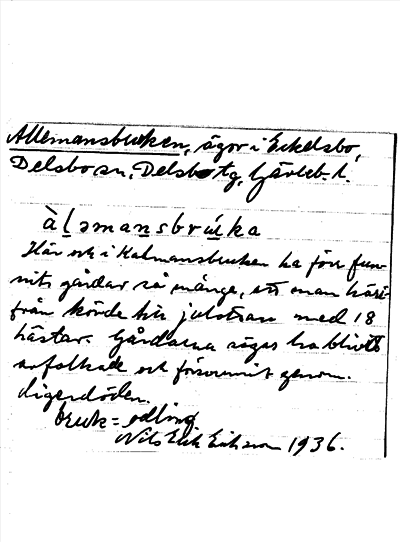 Allemansbruken, ägor i Eckelsbo,
Delsbo sn, Delsbo tg, Gävleb. l.
àl̠əmans̠brúka
Här och i Kalmansbruken ha förr fun-
nits gårdar så många, att man här-
ifrån körde hit julotran med 18
hästar. Gårdarna säges ha blivit
avfolkade och försvunnit genom
digerdöden.
bruk = odling
Nils Erik Eriksson 1936.